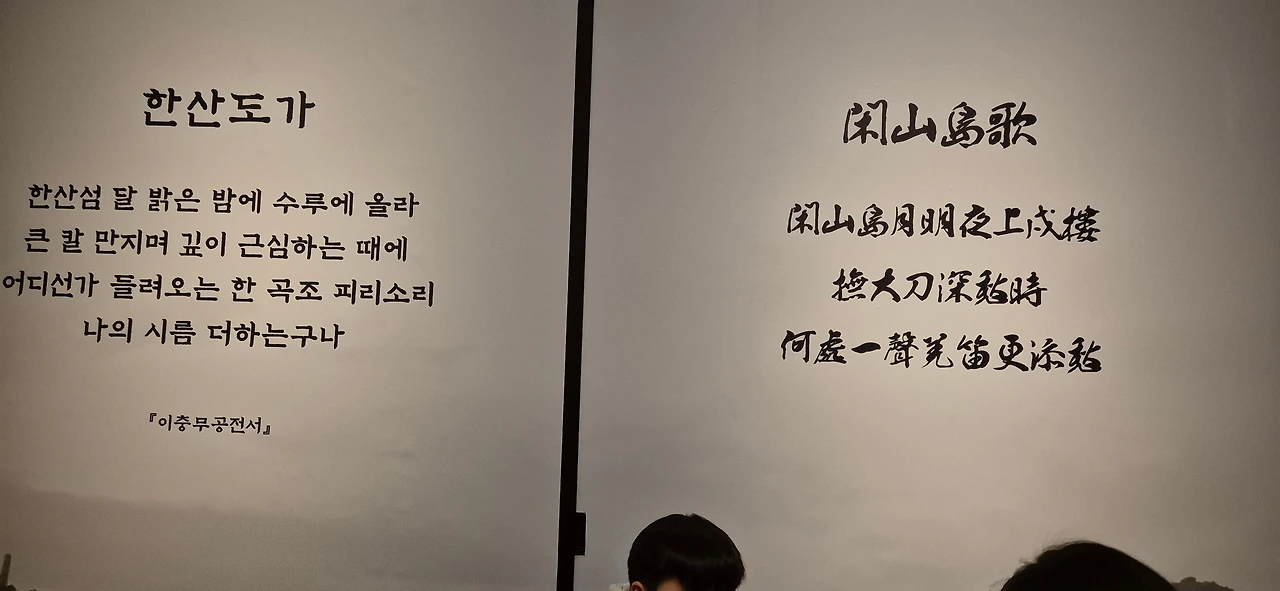 한산도가
한산섬 달 밝은 밤에 수루에 올라
큰 칼 만지며 깊이 근심하는 때에
어디선가 들려오는 한 곡조 피리소리
나의 시름 더하는구나
『이충무공전서』
閑山島歌
閑山島月明夜上戍樓
撫大刀深愁時
何處一聲羌笛更添愁